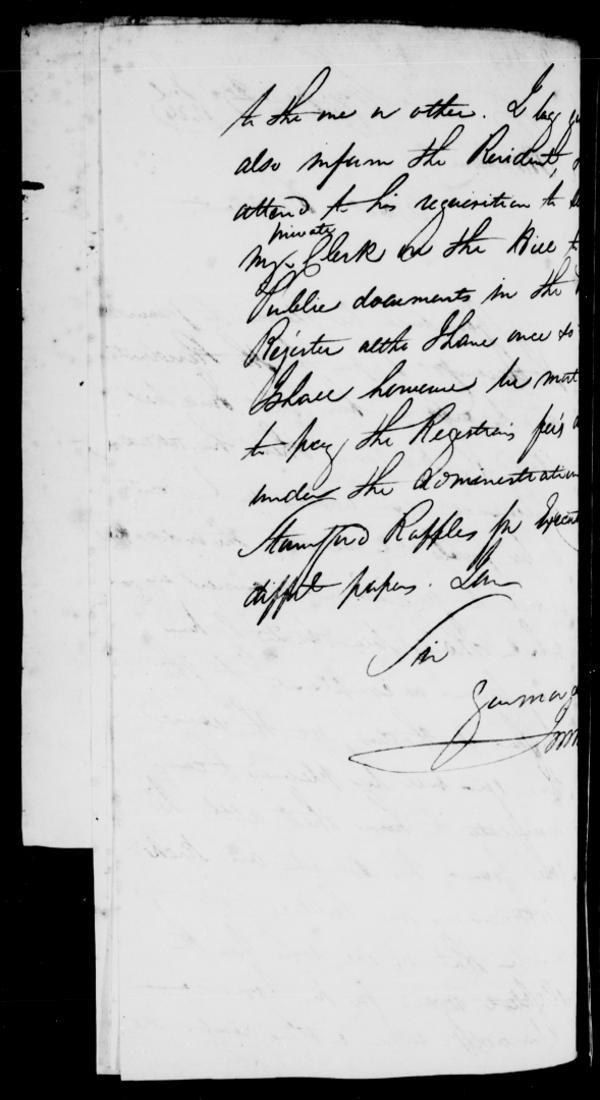 to the one or other. I beg
also inform the Resident,
attend to his requisition to
private
my Clerk on the Hill to
Public documents in the
Register altho I have once
I shall however be most
to pay the Registrar's fees
under the administration
Stamford Raffles for
diffrt papers. I am
Sir
Your most